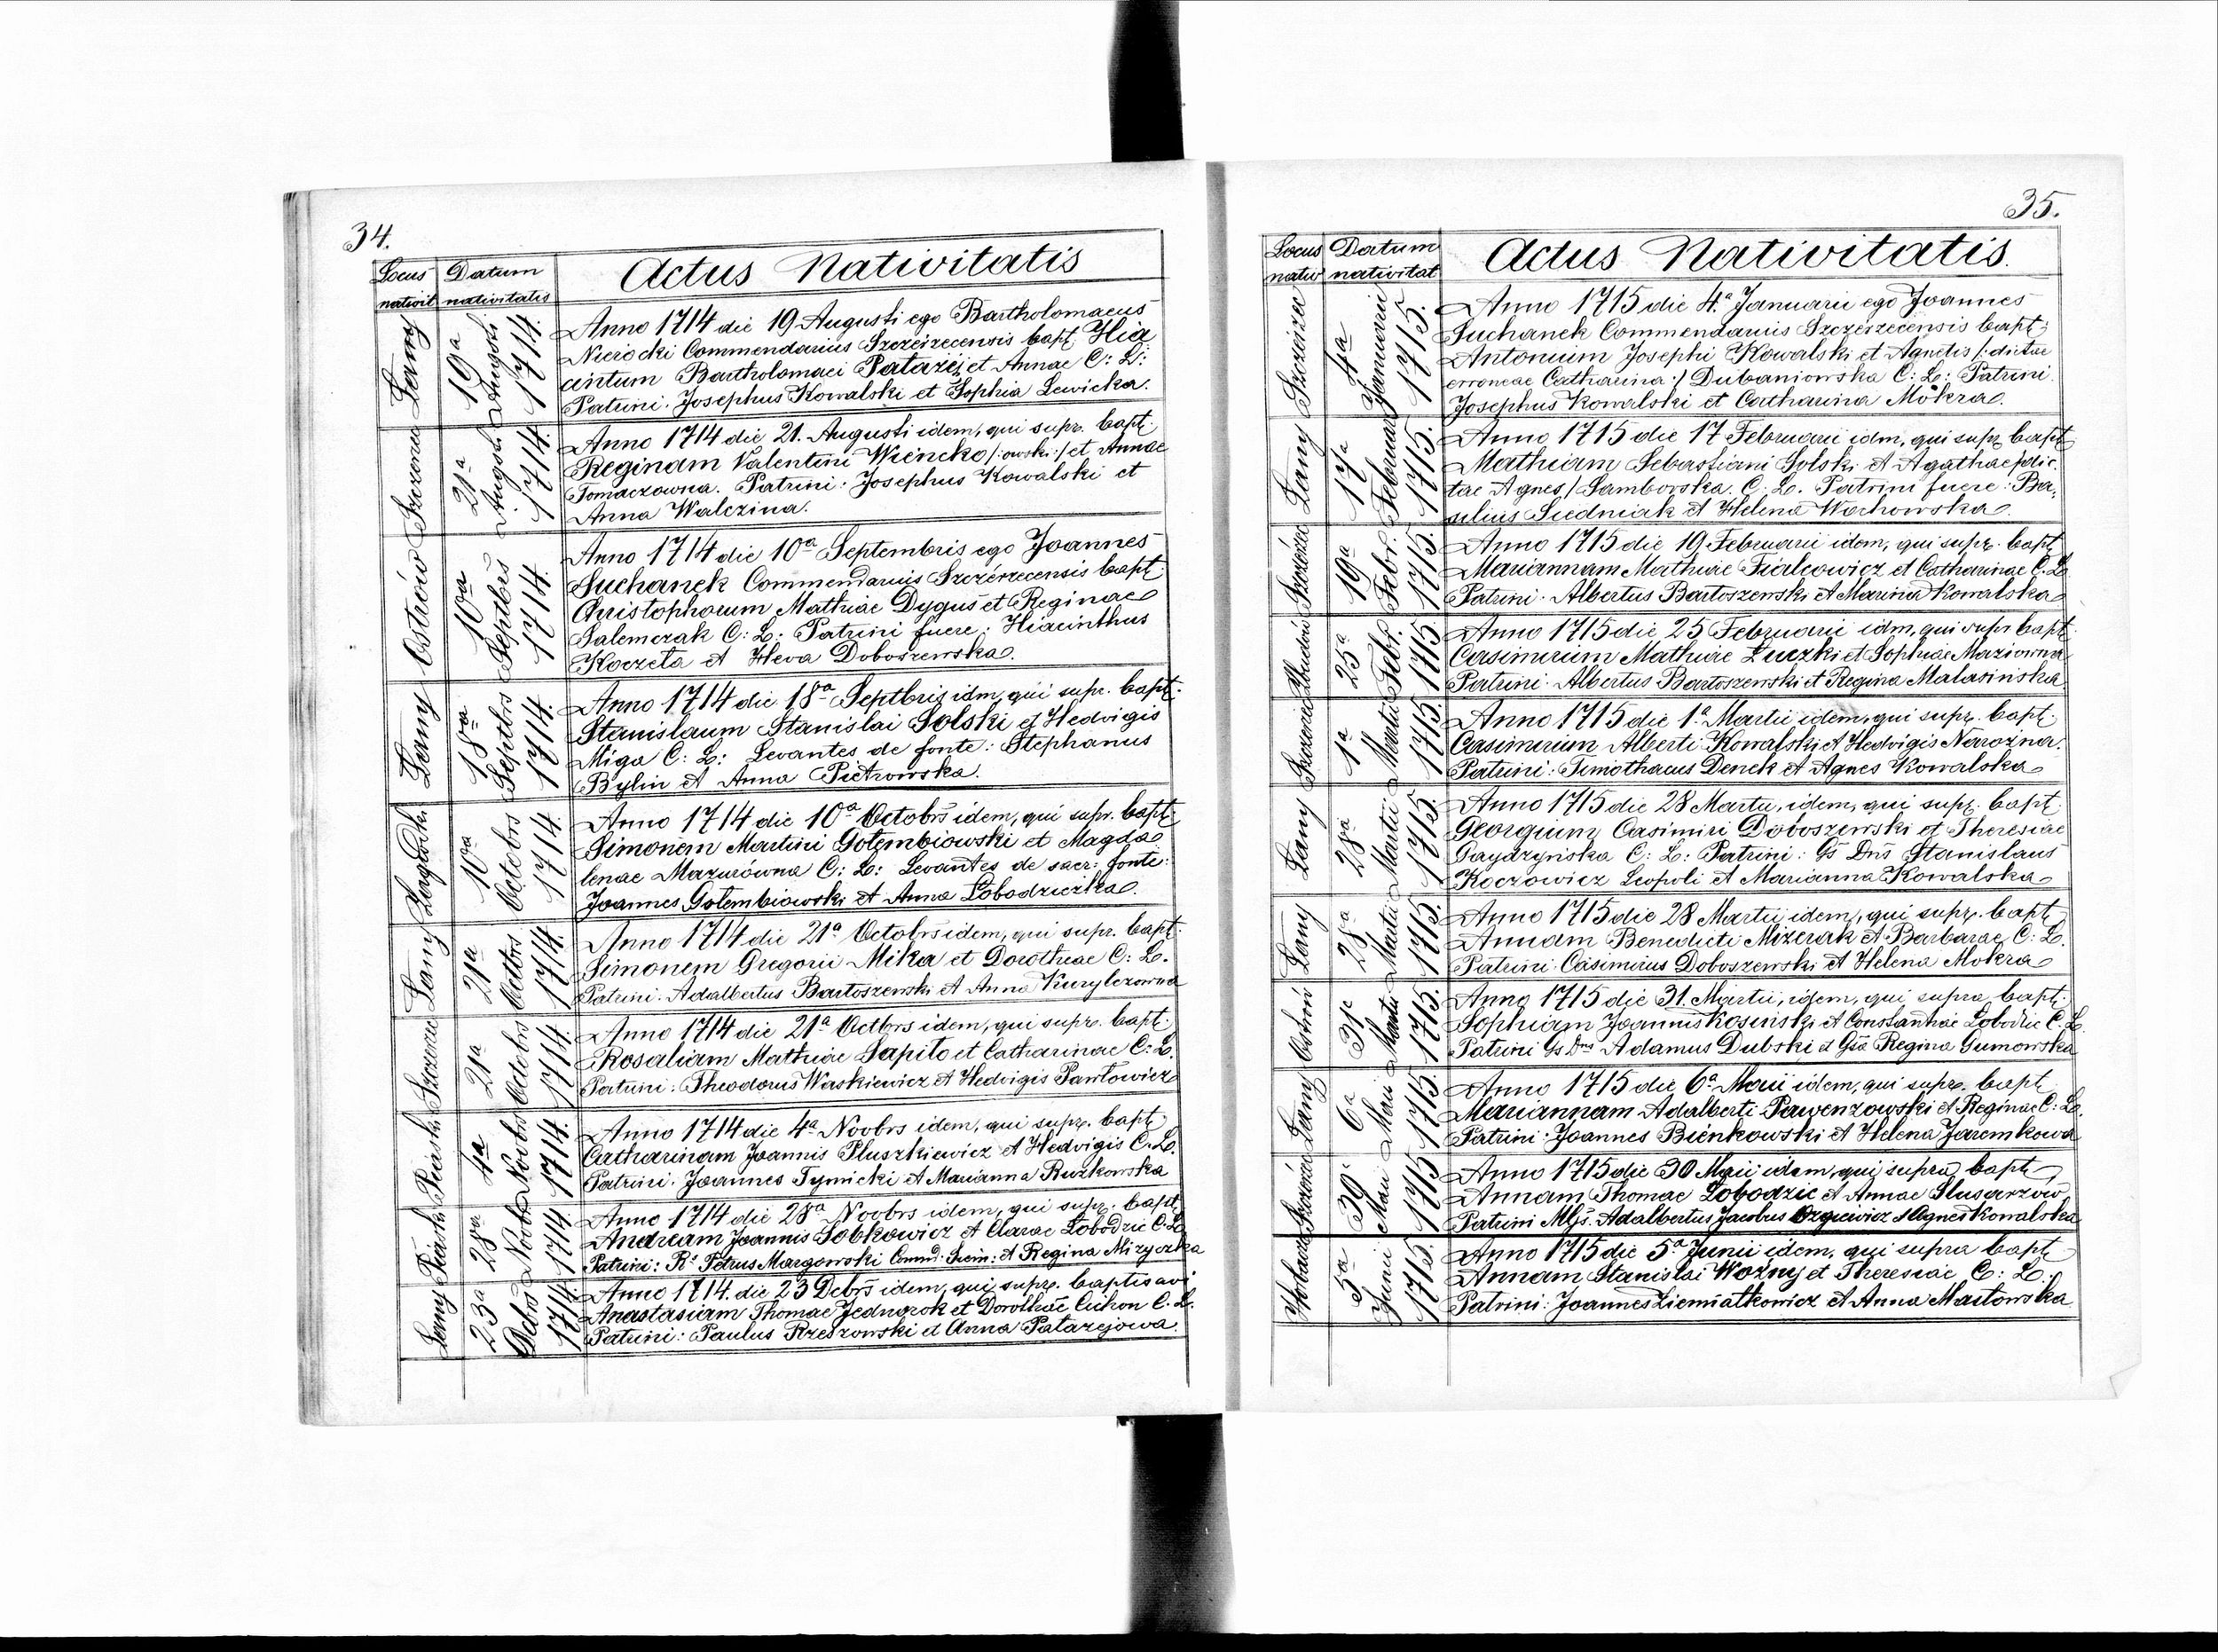 34.
Locus nativit
Datum nativitatis
Actus Nativitatis
Łany
19a Augusti 1714.
Anno 1714 die 19 Augusti ego Bartholomaeus
Nierocki Commendarius Szczérzecensis bapt: Hia
cintum Bartholomaei Pataréj et Annae C: L:
Patrini: Josephus Kowalski et Sophia Lewicka.
21a Augusti 1714.
Anno 1714 die 21. Augusti idem, qui supr. bapt:
Reginam Valentini Wiencko/:owski:/ et Annae
Tomaczowna. Patrini: Josephus Kowalski et
Anna Walczina.
Ostrów
10a Septbris 1714.
Anno 1714 die 10a Septembris ego Joannes
Suchanek Commendarius Szczérzecensis bapt:
Christophorum Mathiae Dyguś et Reginae
Salemczak C: L: Patrini fuere: Hiacinthus
Koczeta et Heva Doboszewska.
Łany
18a Septbrs 1714.
Anno 1714 die 18a Septbris idm, qui supr. bapt:
Stanislaum Stanislai Solski et Hedvigis
Miga C: L: Levantes de fonte: Stephanus
Bylin et Anna Pietrowska.
10a Octobrs 1714
Anno 1714 die 10a Octobrs idem, qui supr. bapt:
Simonem Martini Gołembiowski et Magda
lenae Mazurówna C: L: Levantes de sacr: fonte:
Joannes Gołembiowski et Anna Łobodziczka.
Łany
21a Octbrs 1714.
Anno 1714 die 21a Octobrs idem, qui supr. bapt:
Simonem Gregorii Mika et Dorotheae C: L.
Patrini: Adalbertus Bartoszewski et Anna Kurylczowna
21a Octobrs 1714.
Anno 1714 die 21a Octbrs idem, qui supr. bapt:
Rosaliam Mathiae Sapito et Catharinae C: L.
Patrini: Theodorus Waskiewicz et Hedvigis Pawłowicz
Piaski
4a Novbrs 1714.
Anno 1714 die 4a Novbrs idem, qui supr. bapt:
Catharinam Joannis Pluszkiewicz et Hedvigis C. L.
Patrini: Joannes Tymicki et Marianna Ruzkowska
Piaski
28a Novbr 1714.
Anno 1714 die 28a Novbrs idem, qui supr. bapt:
Andream Joannis Sobkowicz et Clarae Łobodzic C. L.
Patrini: Rs Petrus Margowski Commd: Srem: et Regina Mizyczka
Łany
23a Debrs 1714.
Anno 1714. die 23 Debrs idem, qui supr. baptisavi
Anastasiam Thomae Jednorok et Dorotheae Cichon C. L.
Patrini: Paulus Rzeszowski et Anna Patarejowa.
35.
Locus nativ
Datum nativitat
Actus Nativitatis.
Szczérzec
4a Januarii 1715.
Anno 1715 die 4.a Januarii ego Joannes
Suchanek Commendarius Szczérzecensis bapt:
Antonium Josephi Kowalski et Agnetis /:dictae
erroneae Catharina:/ Dubaniowska C: L: Patrini
Josephus Kowalski et Catharina Mokra.
Łany
17a Februar 1715.
Anno 1715 die 17 Februarii idm, qui supr. bapt:
Mathiam Sebastiani Solski et Agathae /dic.
tae Agnes/ Samborska. C: L. Patrini fuere: Ba,
silius Siedniak et Helena Wachowska.
19a Febr. 1715.
Anno 1715 die 19 Februarii idem, qui supr. bapt:
Mariannam Mathiae Fialkowicz et Catharinae C. L
Patrini: Albertus Bartoszewski et Marina Kowalska
25a Febr. 1715
Anno 1715 die 25 Februarii idm, qui supr bapt:
Casimirum Mathiae Łuczki et Sophiae Maziowna
Patrini: Albertus Bartoszewski et Regina Malasinska
1a Martii 1715.
Anno 1715 die 1.a Martii idem, qui supr. bapt:
Casimirum Alberti Kowalski et Hedvigis Narożna.
Patrini: Timothaeus Denek et Agnes Kowalska
Łany
28a Martii 1715.
Anno 1715 die 28 Martii, idem, qui supr. bapt:
Georgium Casimiri Doboszewski et Theresiae
Gaydzyńska C: L: Patrini: Gs Dns Stanislaus
Koczowicz Leopoli et Marianna Kowalska
Łany
28a Martii 1715.
Anno 1715 die 28 Martii idem, qui supr. bapt:
Annam Benedicti Mizerak et Barbarae C: L.
Patrini: Casimirus Doboszewski et Helena Mokra
Ostrów
31a Martii 1715.
Anno 1715 die 31. Martii, idem, qui supra bapt:
Sophiam Joannis Kosinski et Constantiae Łobodzic C. L.
Patrini Gs Dns Adamus Dubski et Gsa Regina Gumowska
Łany
6a Maii 1715.
Anno 1715 die 6a Maii idem, qui supr. bapt:
Mariannam Adalberti Pawenzowski et Reginae C: L.
Patrini: Joannes Bienkowski et Helena Jaremkowa
30 Maii 1715
Anno 1715 die 30 Maii idem, qui supra bapt:
Annam Thomae Łobodzic et Annae Slusarzów
Patrini Mgs. Adalbertus Jacobus et Agnes Kowalska
5a Junii 1715.
Anno 1715 die 5a Junii idem, qui supra bapt:
Annam Stanislai Woźny et Theresiae C: L:
Patrini: Joannes Ziemiałkowicz et Anna Masłowska